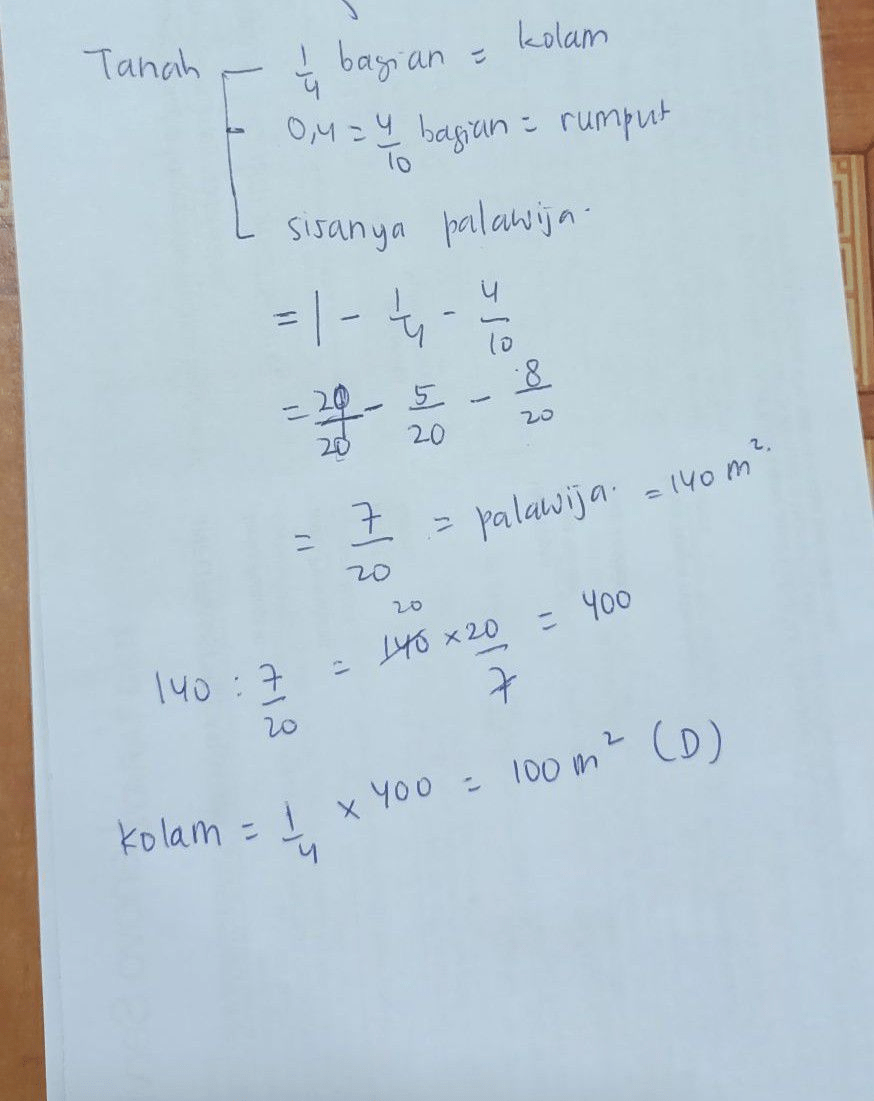 Tanah - 1/4 bagian = kolam
- 0,4 = 4/10 bagian = rumput
sisanya palawija.
= 1 - 1/4 - 4/10
= 20/20 - 5/20 - 8/20
= 7/20 = palawija. = 140 m².
140 : 7/20 = 140 × 20/7 = 400
20
kolam = 1/4 × 400 = 100 m² (D)